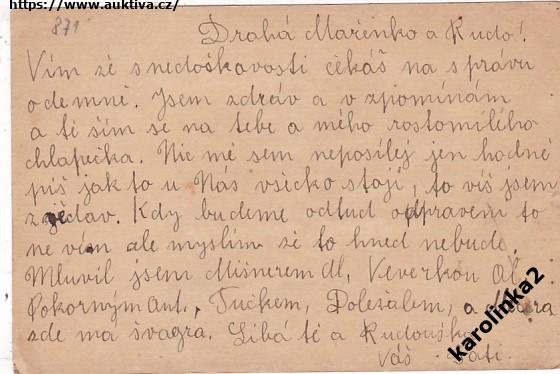 https://www.auktiva.cz/
871
Drahá Mařenko a Rudo!
Vím zě snedočkavosti čěkáš na správu
odemně. Jsem zdráv a v zpomínám
a tě ším se na tebe a mého rostomilého
chlapěčka. Nic mě sem neposílej jen hodně
piš jak to u Nás vsicko stojí, to víš jsem
zvědav. Kdy budeme odtud odpravem to
ne vím ale myslím zě to hned nebude.
Mluvil jsem Misnerem Al, Veverkou Al.
Pokorným Ant., Tučkem, Doležalem, a
zde má švagra. Libá tě a
Váš Tati.
karolinka2